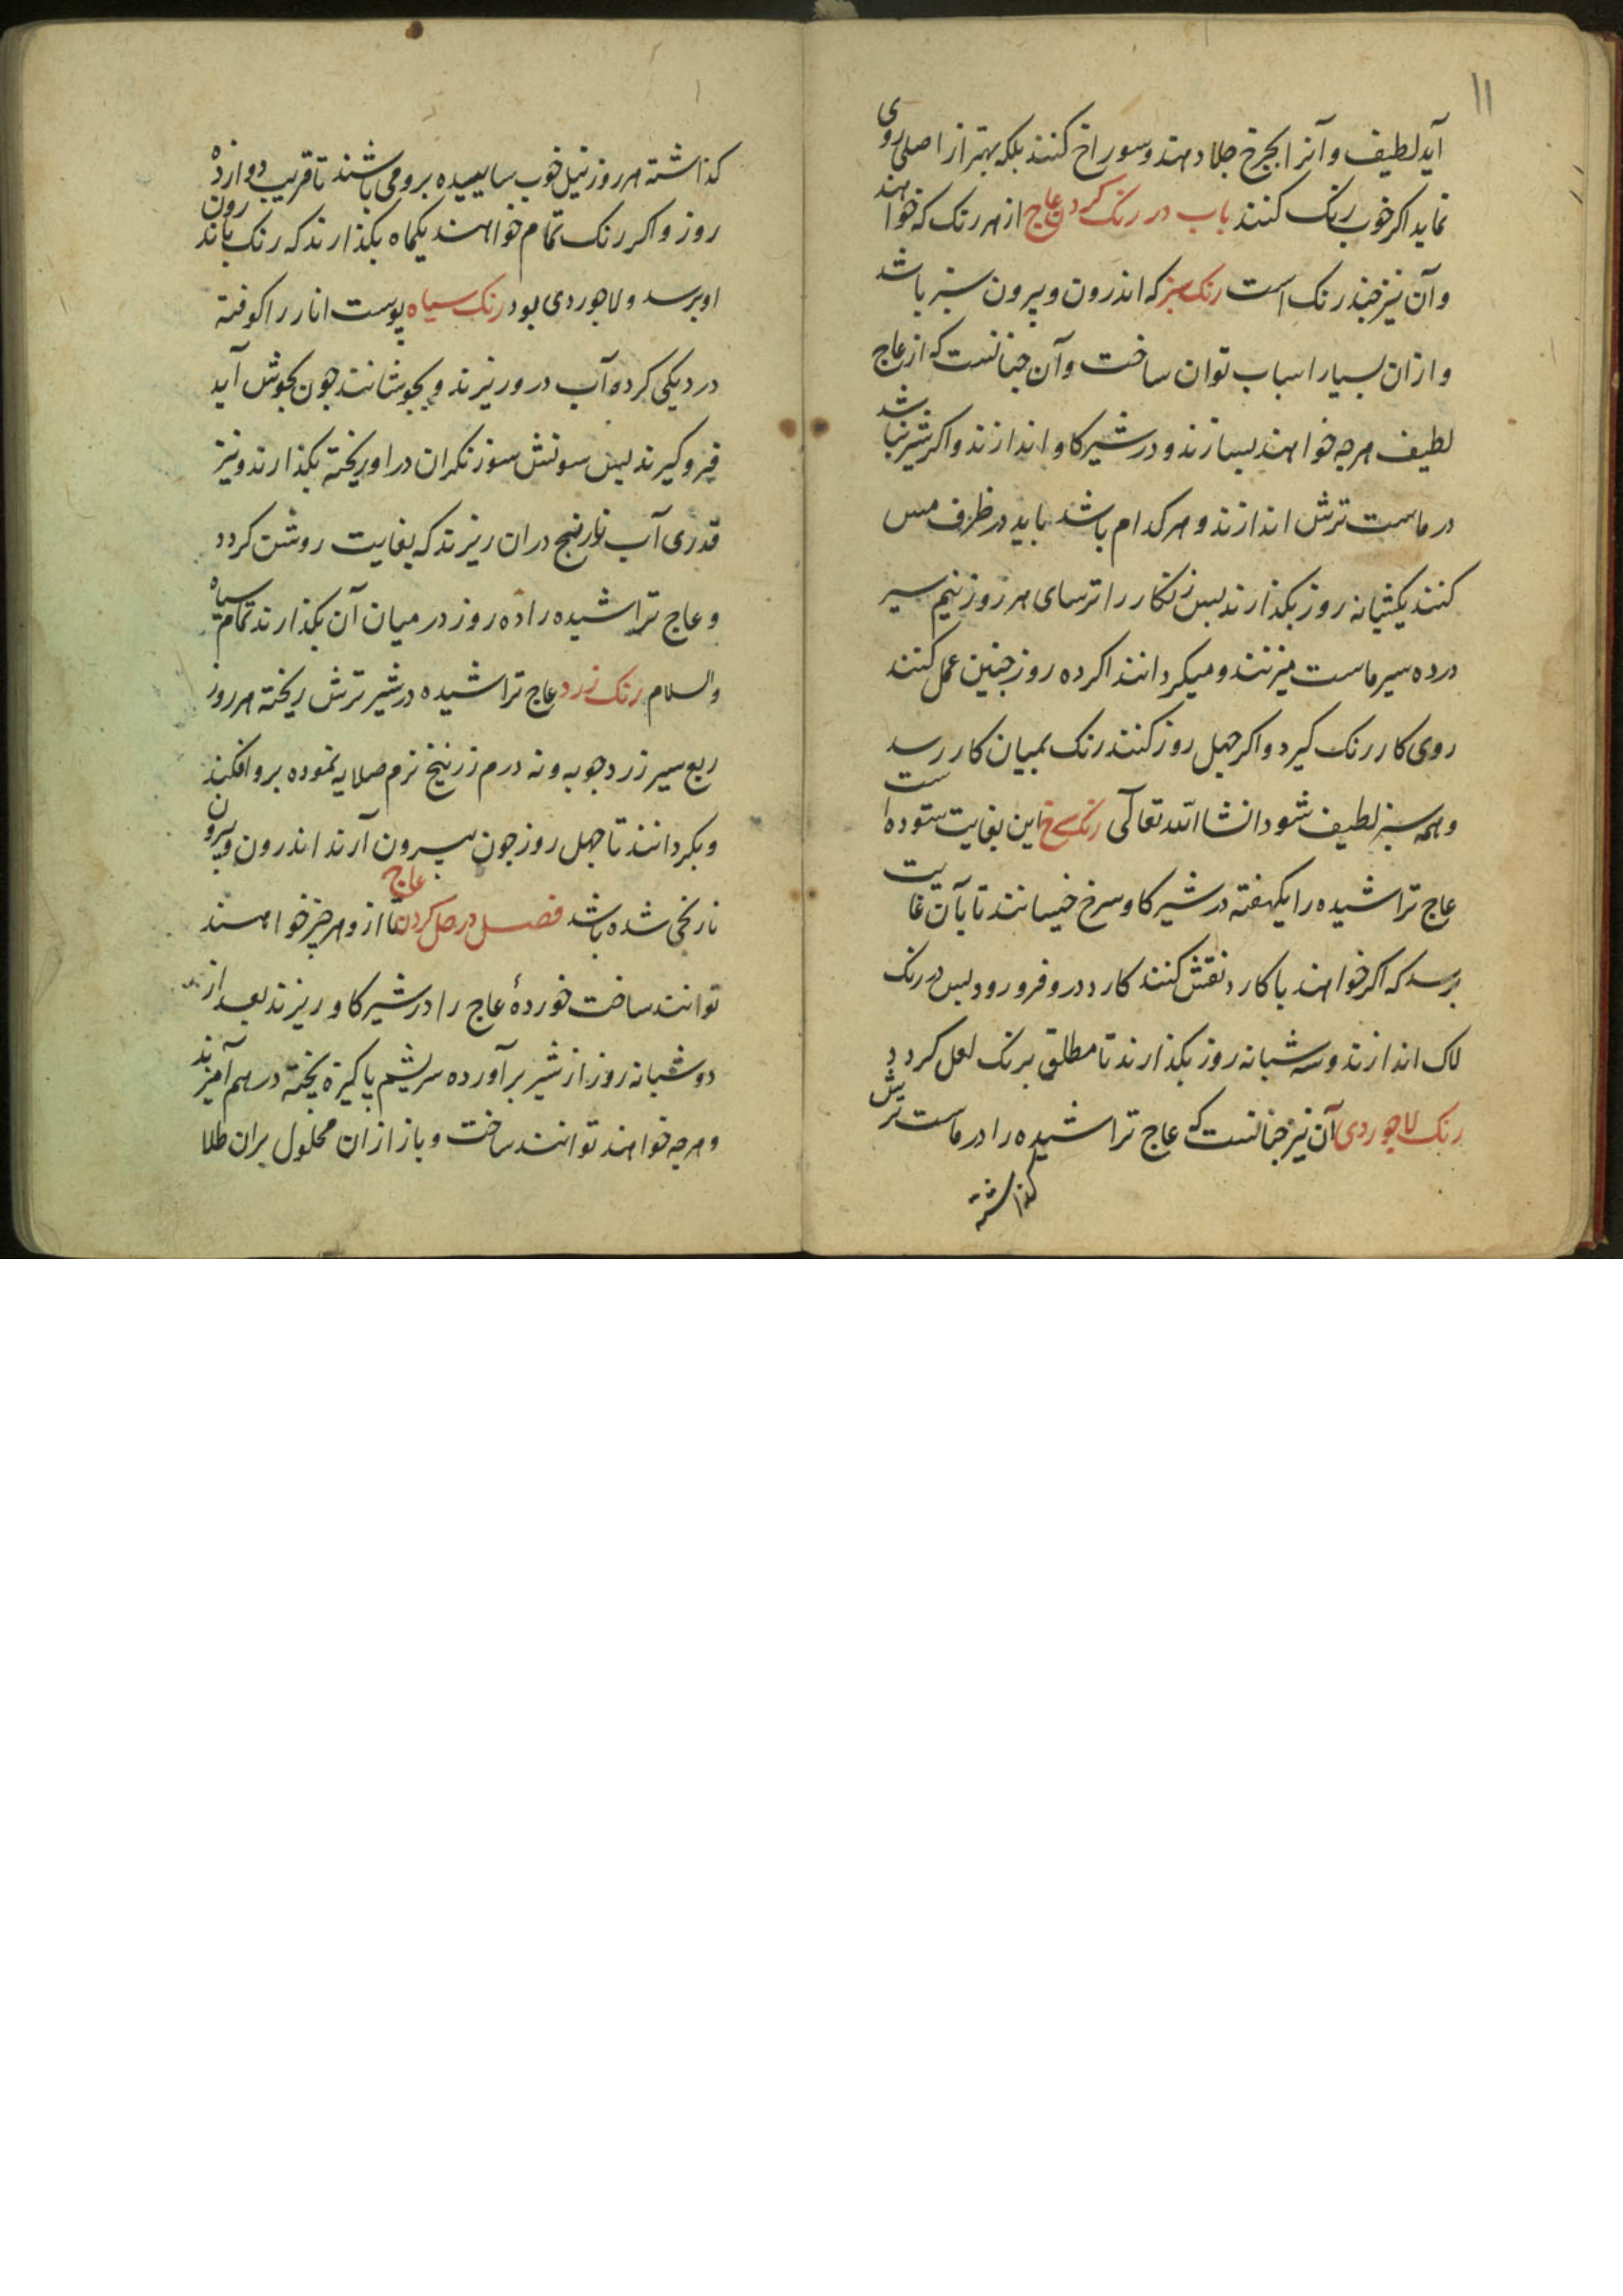 ۱۱
آید لطیف و آنرا بچرخ جلا دهند و سوراخ کنند بلکه بهتر از اصلی روی
نماید اکر خوب رنک کنند باب در رنک کردن عاج از هر رنک که خواهند
و آن نیز چند رنک است رنک سبز که اندرون و بیرون سبز باشد
و ازان بسیار اسباب توان ساخت و آن چنانست که از عاج
لطیف هرچه خواهند بسازند و در شیر کاو اندازند و اکر شیر نباشد
در ماست ترش اندازند و هر کدام باشد باید در ظرف مس
کنند یکشبانه روز بکذارند پس زنکار را ترسای هر روز نیم سیر
در ده سیر ماست میزنند و میکردانند اکر ده روز چنین عمل کنند
روی کار رنک کیرد و اکر چهل روز کنند رنک بمیان کار رسد
و همه سبز لطیف شود انشا الله تعالی رنک سرخ این بغایت ستوده است
عاج تراشیده را یکهفته در شیر کاو سرخ خیسانند تا بآن غایت
برسد که اکر خواهند با کارد نقش کنند کارد درو فرو رود پس در رنک
لاک اندازند و سه شبانه روز بکذارند تا مطلق برنک لعل کردد
رنک لاجوردی آن نیز چنانست که عاج تراشیده را در ماست ترش
کذاشته
کذاشته هر روز نیل خوب ساییده برو می پاشند تا قریب دوازده
روز و اکر رنک تمام خواهند یکماه بکذارند که رنک باندرون
او برسد و لاجوردی بود رنک سیاه پوست انار را کوفته
در دیکی کرده آب درو ریزند و بجوشانند چون بجوش آید
فرو کیرند پس سونش سوزنکران در او ریخته بکذارند و نیز
قدری آب نارنج دران ریزند که بغایت روشن کردد
و عاج تراشیده را ده روز در میان آن بکذارند تمام سیاه
والسلام رنک زرد عاج تراشیده در شیر ترش ریخته هر روز
ربع سیر زردچوبه و نه درم زرنیخ نرم صلایه نموده برو افکنند
و بکردانند تا چهل روز چون بیرون آرند اندرون و بیرون
نارنجی شده باشد فصل در حل کردن عاج تا ازو هر چیز خواهند
توانند ساخت خوردهٔ عاج را در شیر کاو ریزند بعد از
دو شبانه روز از شیر برآورده سریشم پاکیزه پخته در هم آمیزند
و هرچه خواهند توانند ساخت و باز ازان محلول بران طلا